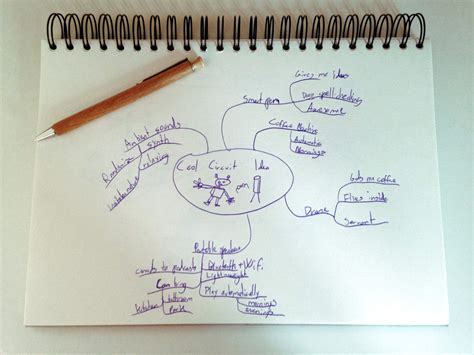 Gives me ideas
Smart pen
Does spell checking
Awesome
Coffee Machine
Automatic
Mornings
Ambient sounds
synth
relaxing
Cool Circuit Idea
pen
Gets me coffee
Flies inside
Drone
Servant
Portable speaker
Bluetooth + Wifi
connects to podcasts
Lightweight
Can bring
Play automatically
bathroom
mornings
Kitchen
Park
evenings